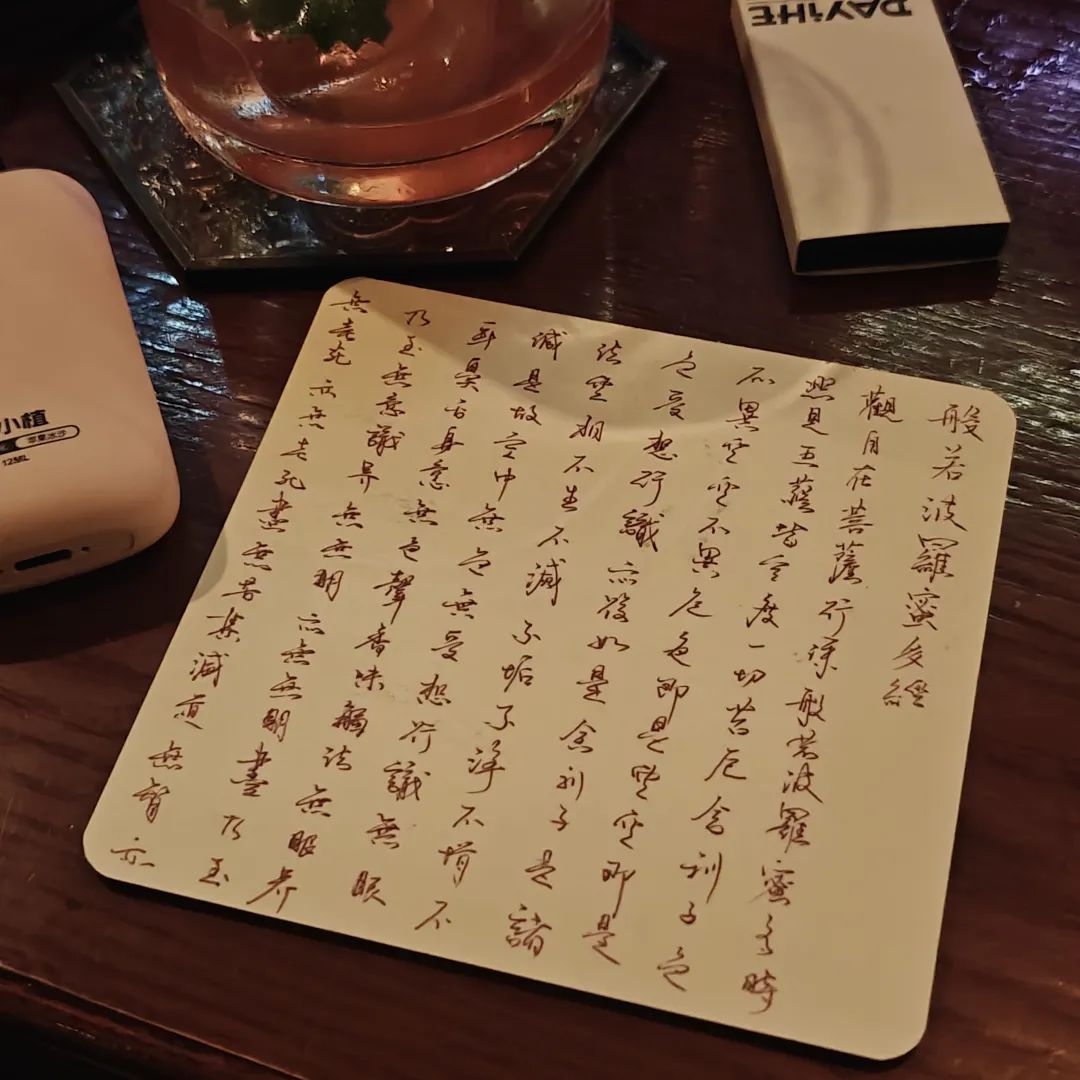 般若波羅蜜多經
觀自在菩薩行深般若波羅蜜多時
照見五蘊皆空度一切苦厄舍利子色
不異空空不異色色即是空空即是
色受想行識亦復如是舍利子是諸
法空相不生不滅不垢不淨不增不
減是故空中無色無受想行識無眼
耳鼻舌身意無色聲香味觸法無眼界
乃至無意識界無無明亦無無明盡乃至
無老死亦無老死盡無苦集滅道無智亦
小植